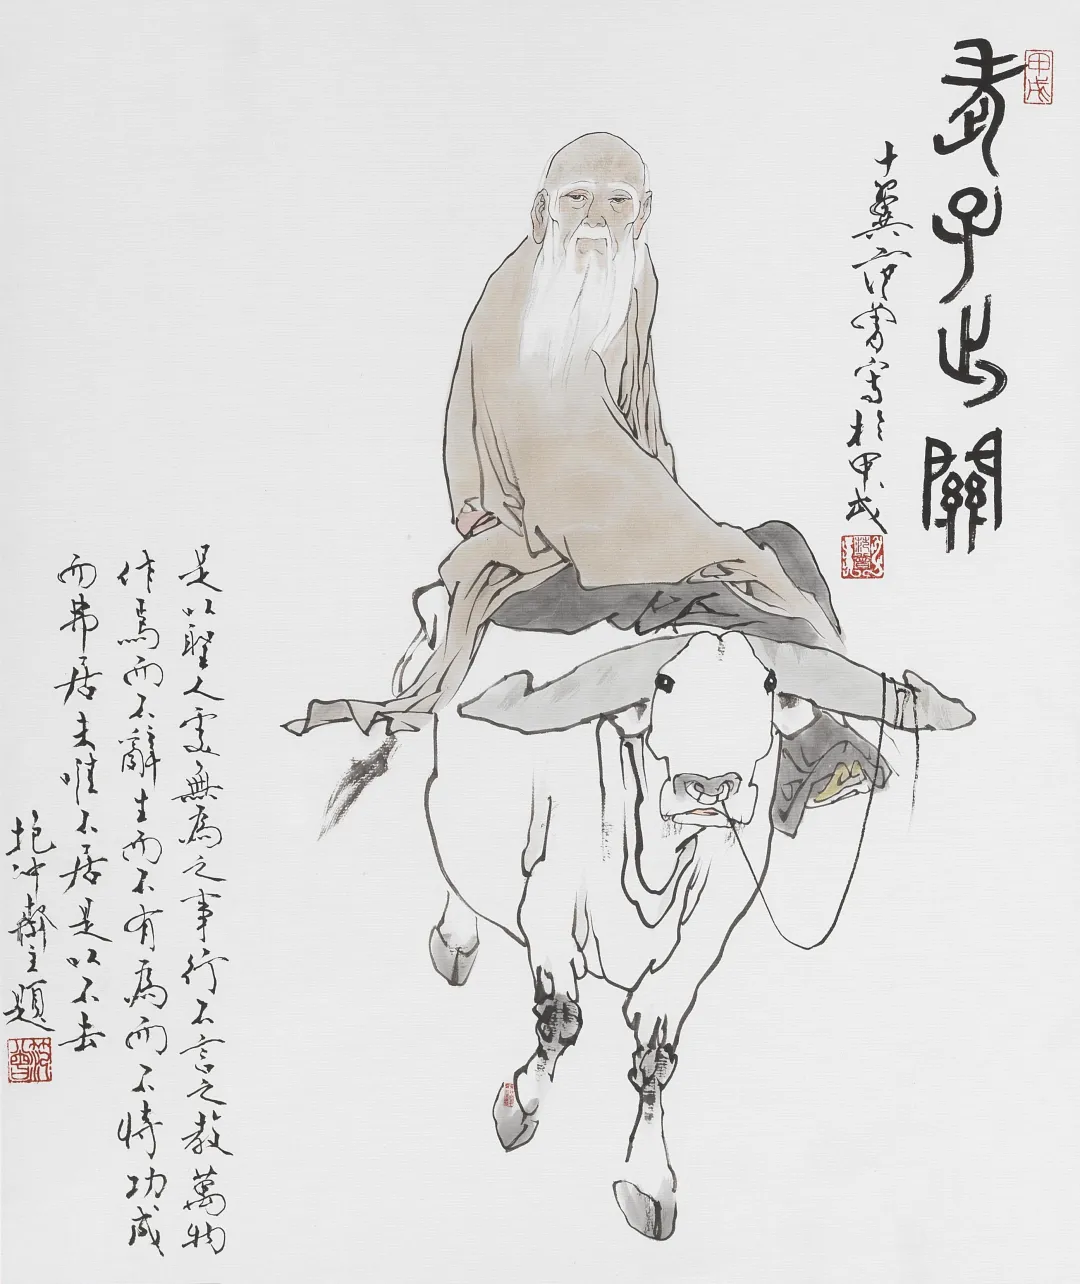 甲戌
老子出關
十翼范曾寫於甲戌
是以聖人處無為之事行不言之教萬物
作焉而不辭生而不有為而不恃功成
而弗居夫唯不居是以不去
抱冲齋主題
范曾